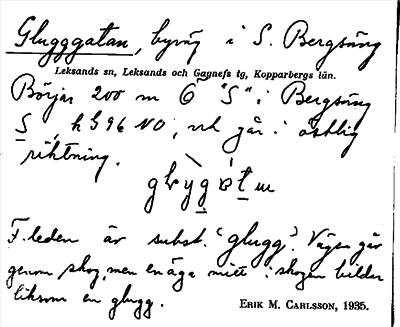 Glugggatan, byväg i S. Bergsäng
Leksands sn, Leksands och Gagnefs tg, Kopparbergs län.
Börjar 200 m Ö "S" i Bergsäng
S, h 596 NO, och går i östlig
riktning.
F. leden är subst. "glugg". Vägen går
genom skog, men en äga mitt i skogen bildar
liksom en glugg.
ERIK M. CARLSSON, 1935.